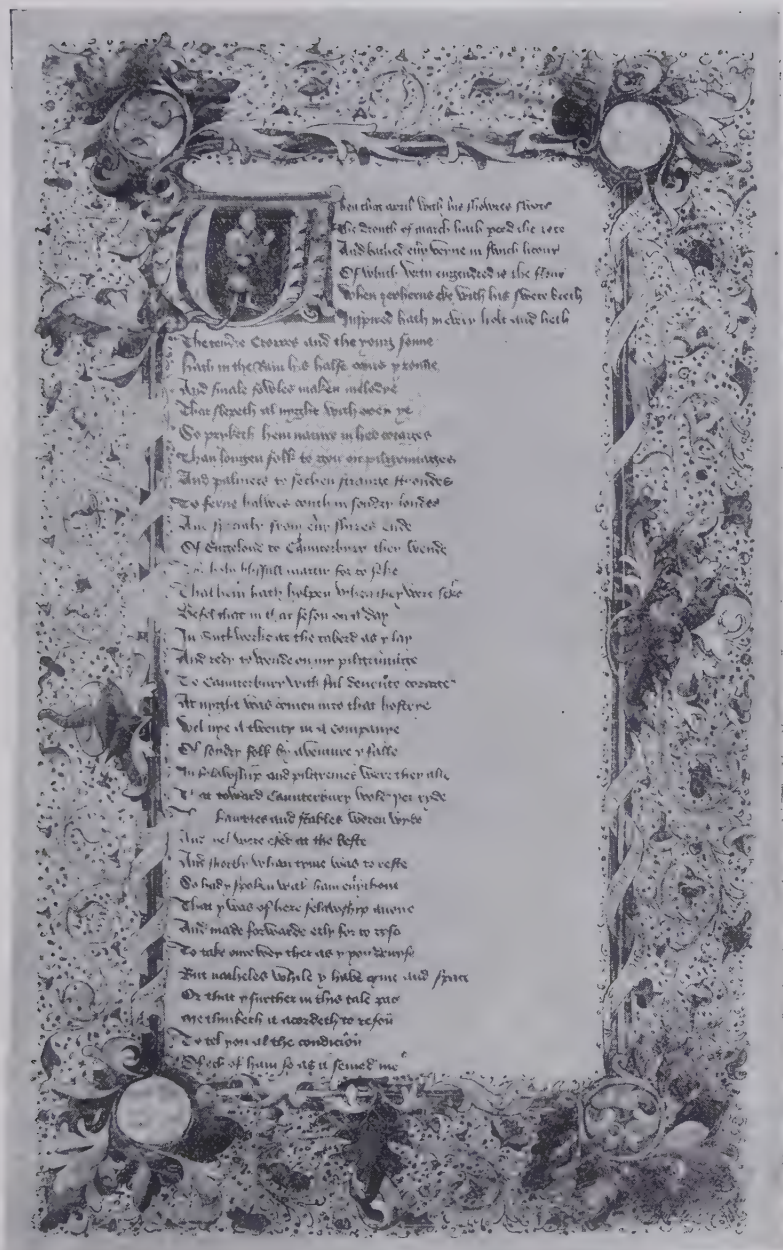 When that april with his showres swote
The drouth of march hath perd the rote
And bathed euery veyne in swich licour
Of which vertu engendred is the flour
When zepherus eke with his swete breth
Inspired hath in euery holt and heth
The tendre Croppes and the yong sonne
Hath in the Ram his halfe cours yronne
And smale fowles maken melodye
That slepeth al nyght with open ye
So pryketh hem nature in her corages
Than longen folk to gon on pilgrimages
And palmers to sechen straunge strondes
To ferne halwes couth in sondry londes
And specialy from euery shires ende
Of Engelond to Caunterbury they wende
The holy blisfull martir for to seke
That hem hath holpen when they were seke
Befel that in that seson on a day
In Suthwerke at the taberd as y lay
And redy to wende on my pilgrimage
To Caunterbury with ful deuoute corrage
At nyght was comen into that hostrye
Wel nye a twenty in a companye
Of sondry folk by auenture y falle
In felawship and pilgremes were they alle
That toward Caunterbury wold ryde
and stables weren wyde
And wel were esed at the beste
And shortly whan was to reste
So had y spoken with ham euerichone
That y was of here felawship anone
And made forwarde erly for to ryse
To take oure wey ther as y you deuyse
But natheles while y haue tyme and space
Or that y further in this tale pas
me thinketh it acordeth to reson
To tel you al the condicion
Of ech of ham so as it semed me